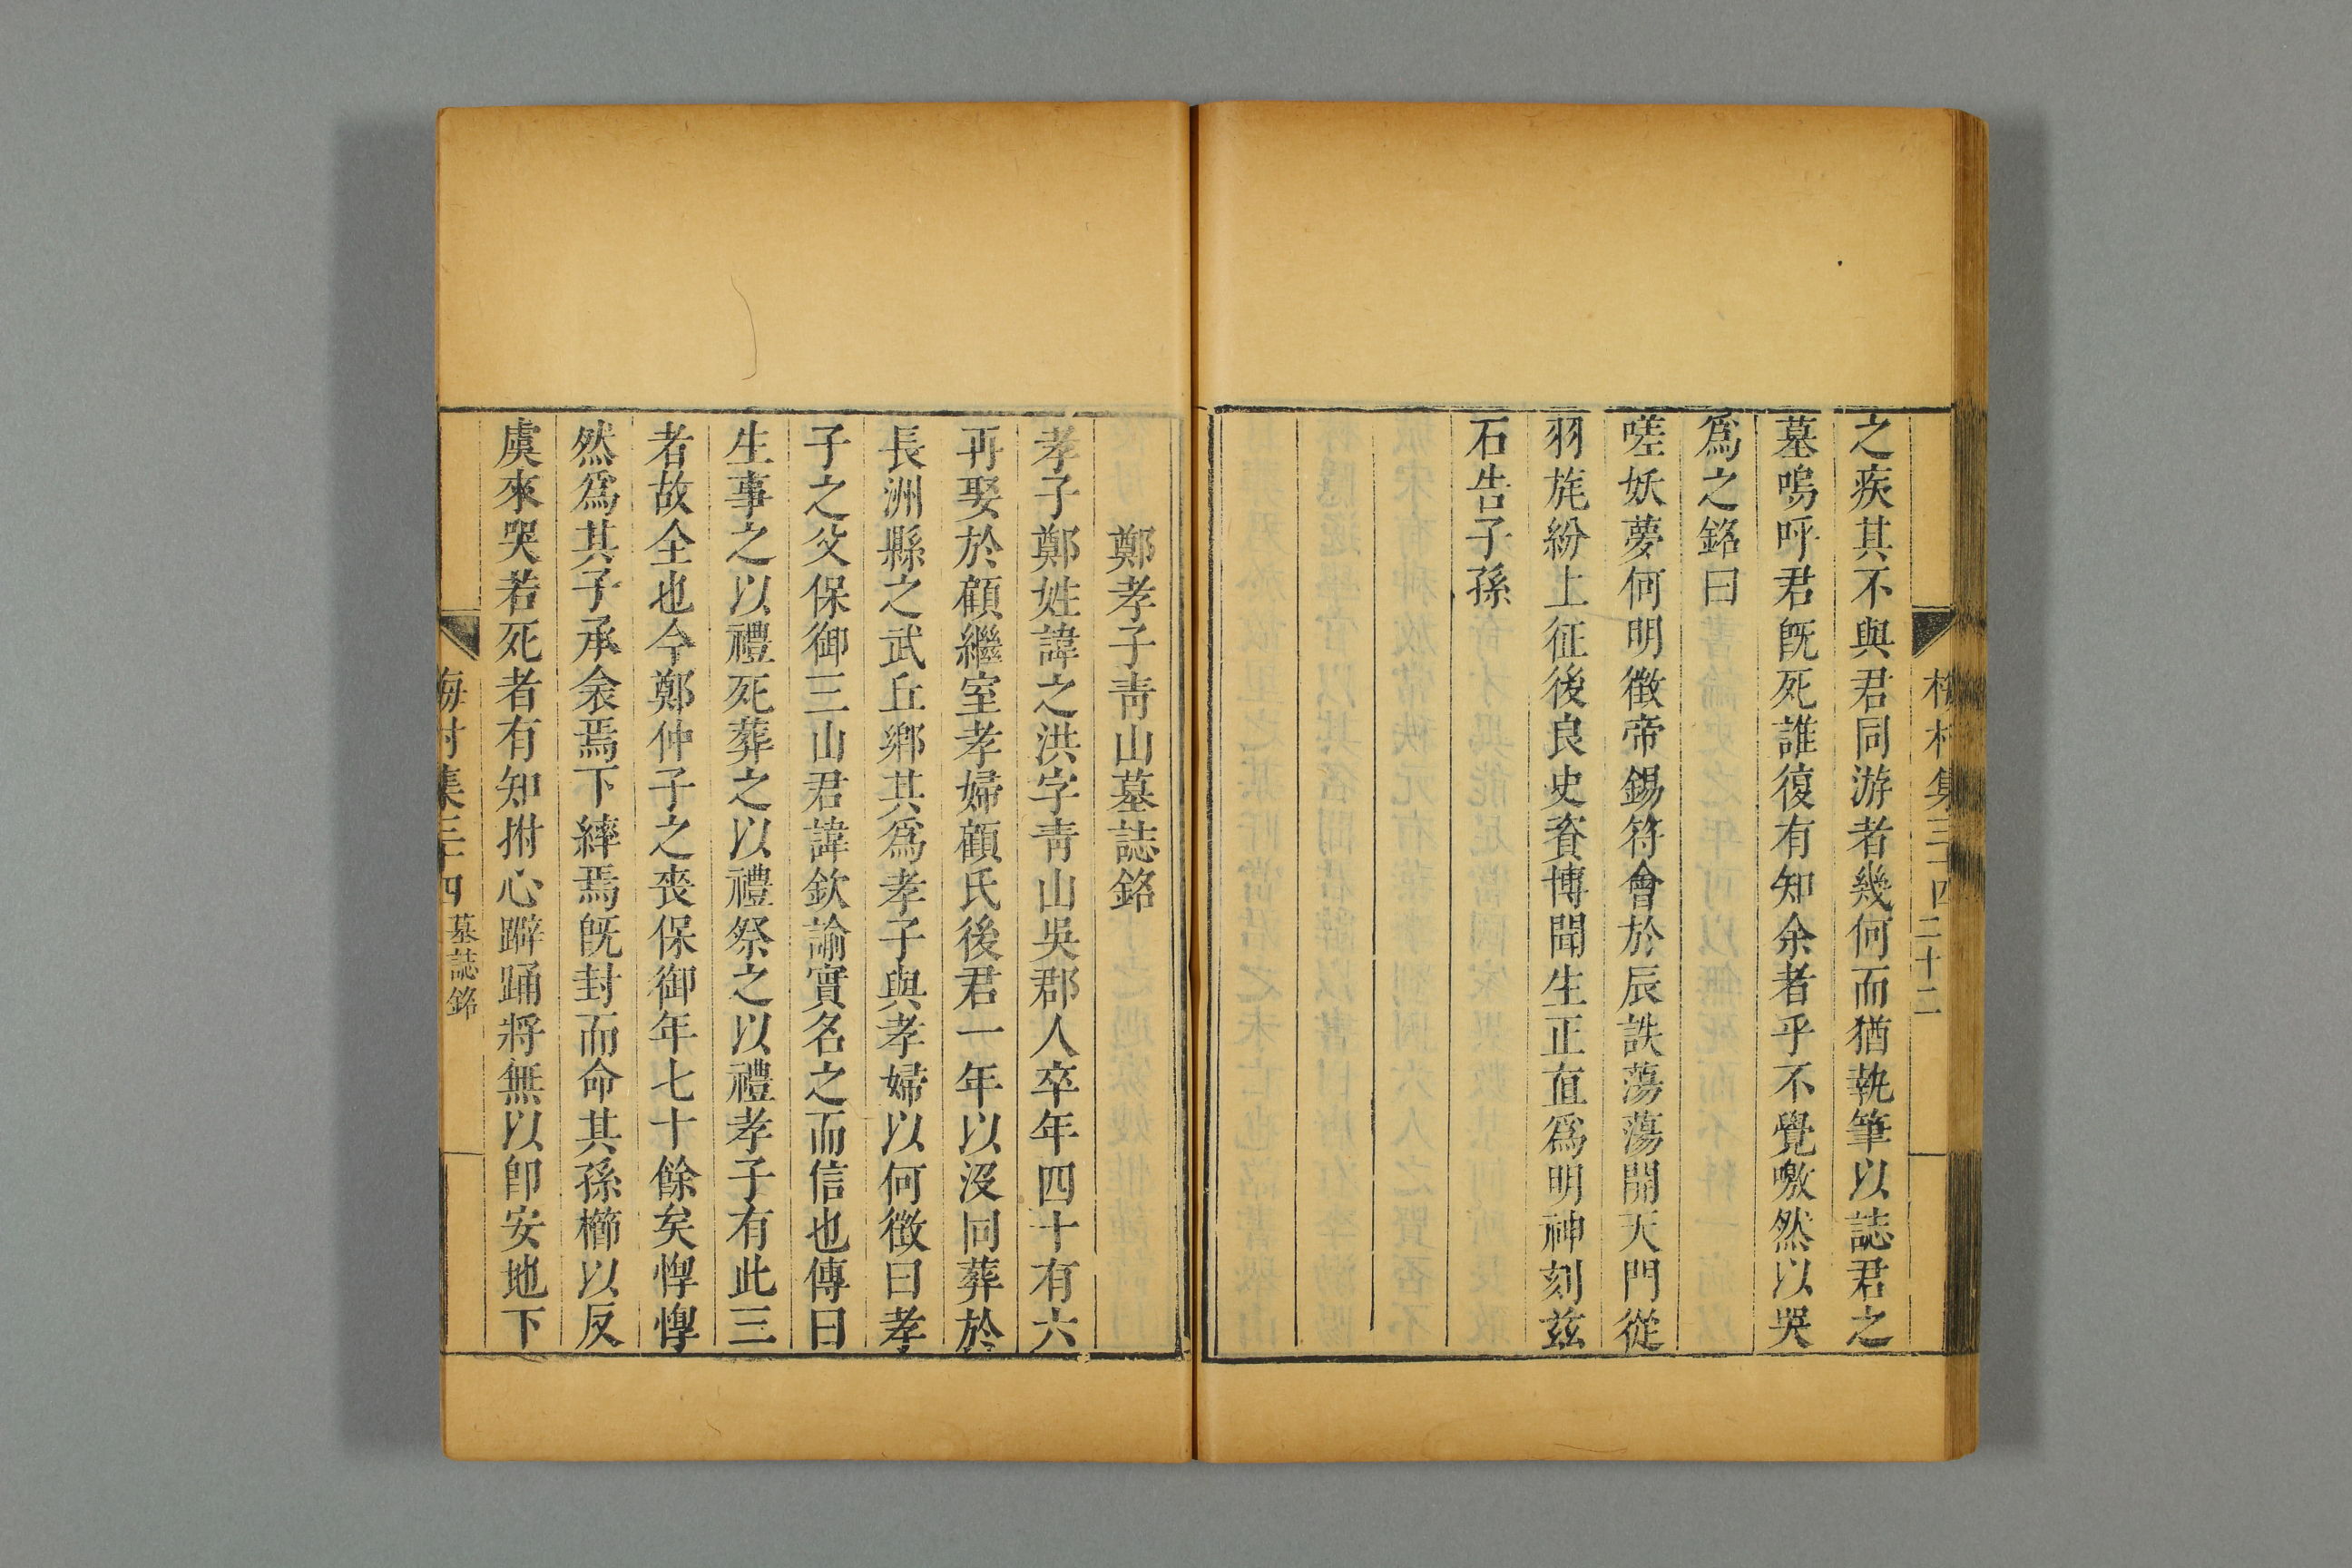 梅村集三十四 二十二
之疾其不與君同游者幾何而猶執筆以誌君之
墓嗚呼君既死誰復有知余者乎不覺噭然以哭
爲之銘曰
嗟妖夢何明徵帝錫符會於辰詄蕩蕩開天門從
羽旄紛上征後良史資博聞生正直爲明神刻茲
石告子孫
鄭孝子青山墓誌銘
孝子鄭姓諱之洪字青山吳郡人卒年四十有六
再娶於顧繼室孝婦顧氏後君一年以沒同葬於
長洲縣之武丘鄉其爲孝子與孝婦以何徵曰孝
子之父保御三山君諱欽諭實名之而信也傳曰
生事之以禮死葬之以禮祭之以禮孝子有此三
者故全也今鄭仲子之喪保御年七十餘矣惸惸
然爲其子承衾焉下繂焉既封而命其孫櫛以反
虞來哭若死者有知拊心躃踊將無以卽安地下
梅村集三十四 墓誌銘